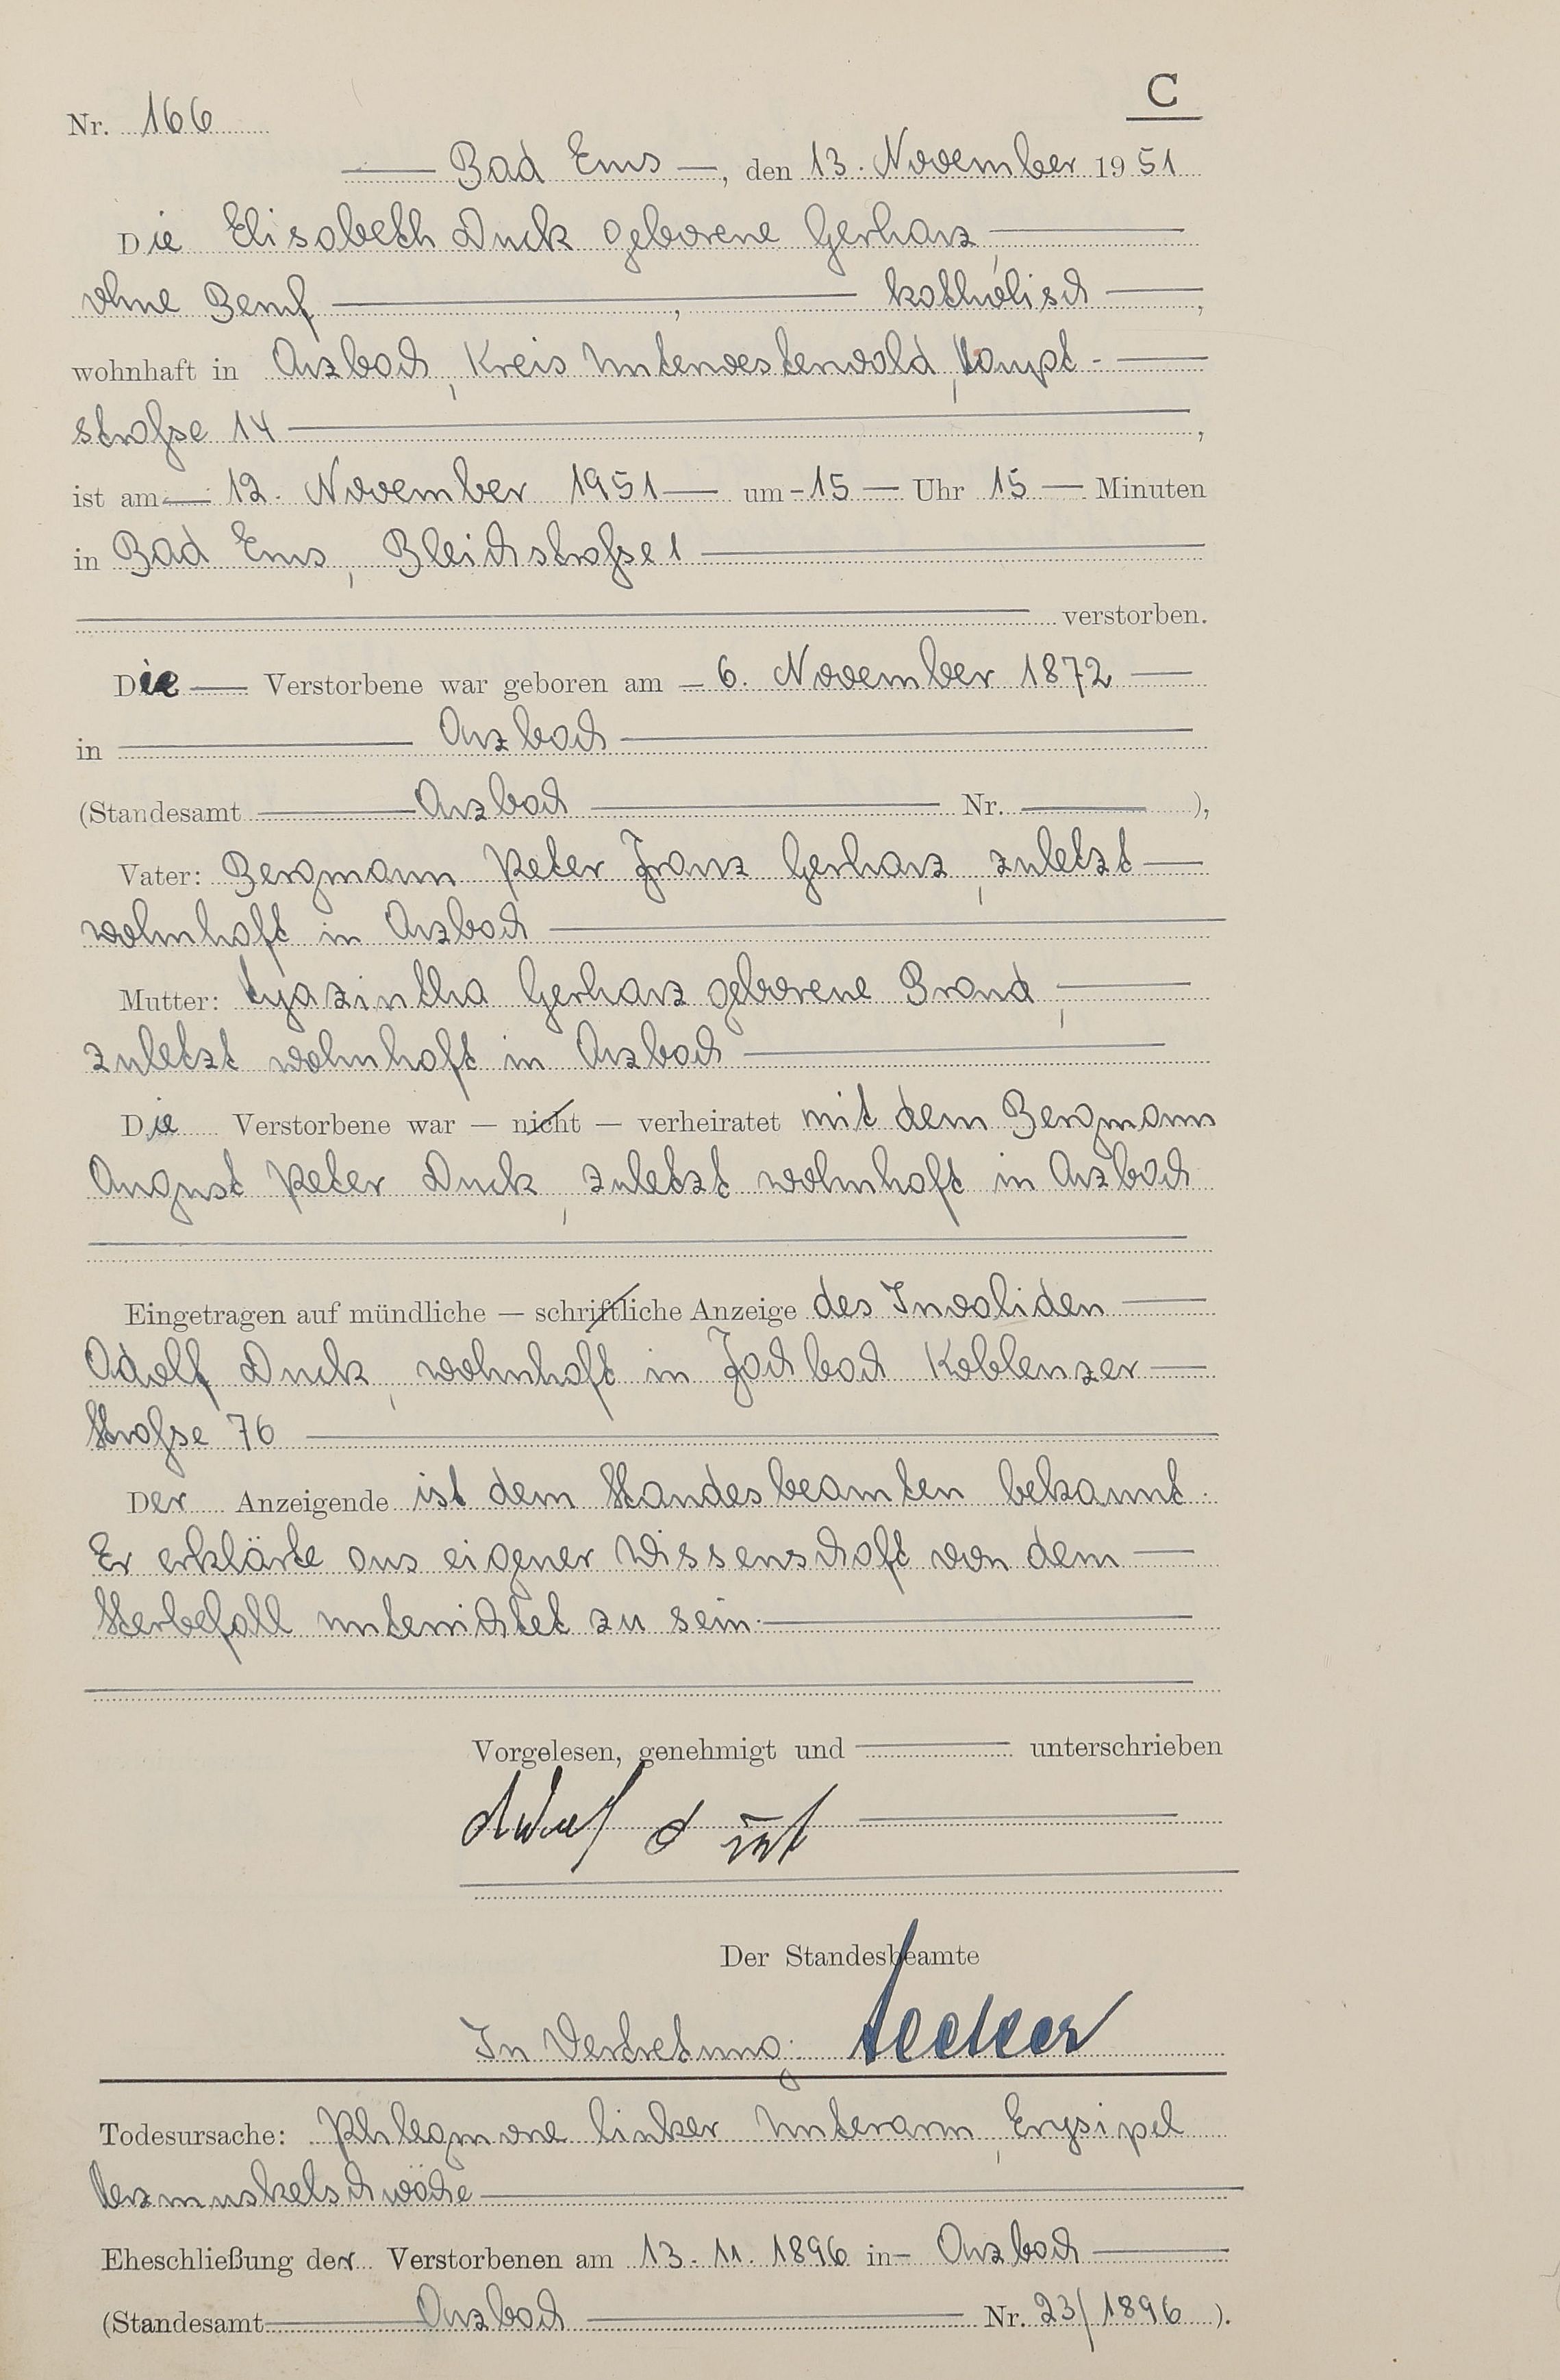 C
Nr. 166
Bad Ems, den 13. November 1951
Die Elisabeth Duck geborene Gerharz,
ohne Beruf, katholisch,
wohnhaft in Arzbach, Kreis Unterwesterwald, Haupt-
straße 14,
ist am 12. November 1951 um 15 Uhr 15 Minuten
in Bad Ems, Bleichstraße 1
verstorben.
Die Verstorbene war geboren am 6. November 1872
in Arzbach
(Standesamt Arzbach Nr. ),
Vater: Bergmann Peter Franz Gerharz, zuletzt
wohnhaft in Arzbach
Mutter: Hyazintha Gerharz geborene Brand,
zuletzt wohnhaft in Arzbach
Die Verstorbene war — nicht — verheiratet mit dem Bergmann
August Peter Duck, zuletzt wohnhaft in Arzbach
Eingetragen auf mündliche — schriftliche Anzeige des Invaliden
Adolf Duck, wohnhaft in Fachbach Koblenzer
Straße 76
Der Anzeigende ist dem Standesbeamten bekannt.
Er erklärte aus eigener Wissenschaft von dem
Sterbefall unterrichtet zu sein.
Vorgelesen, genehmigt und unterschrieben
Der Standesbeamte
In Vertretung:
Todesursache: Phlegmone linker Unterarm, Erysipel
Herzmuskelschwäche
Eheschließung der Verstorbenen am 13. 11. 1896 in Arzbach
(Standesamt Arzbach Nr. 23/1896).